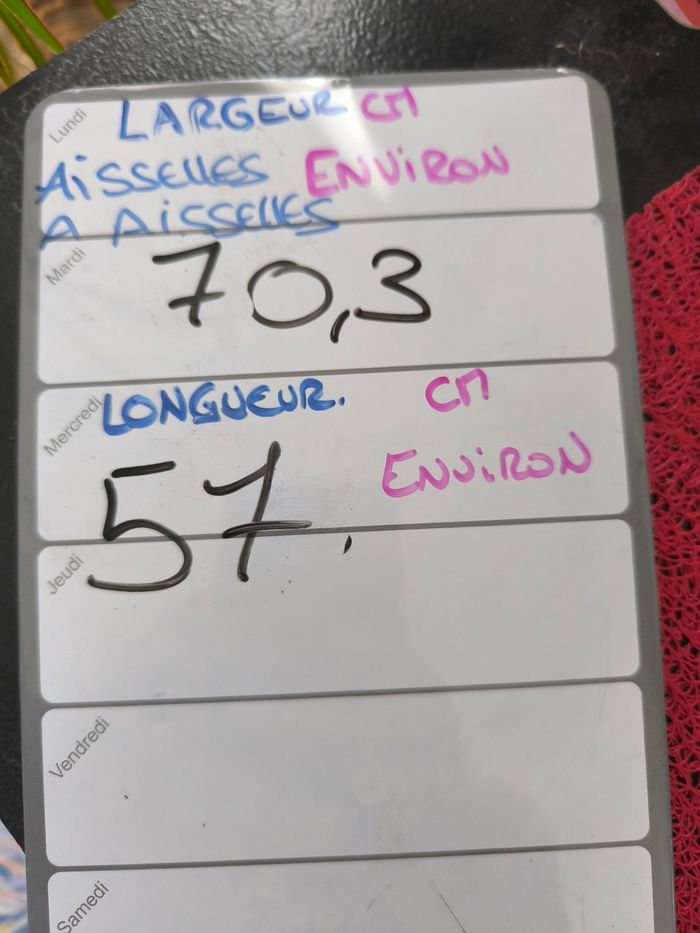 Lundi
LARGEUR CM
AiSSELLES ENViRON
A AiSSELLES
Mardi
70,3
Mercredi
LONGUEUR. CM
ENViRON
57.
Jeudi
Vendredi
Samedi